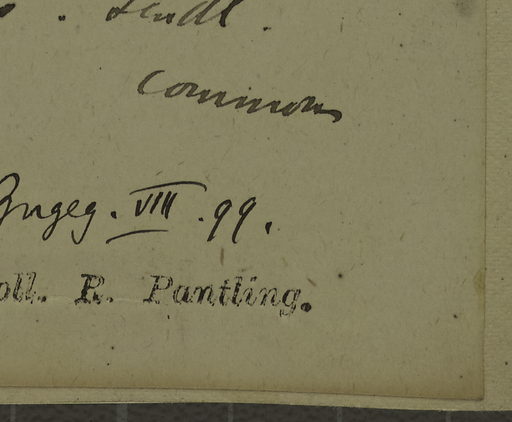 . Lindl.
Common
Engeg. VIII. 99.
oll. R. Pantling.